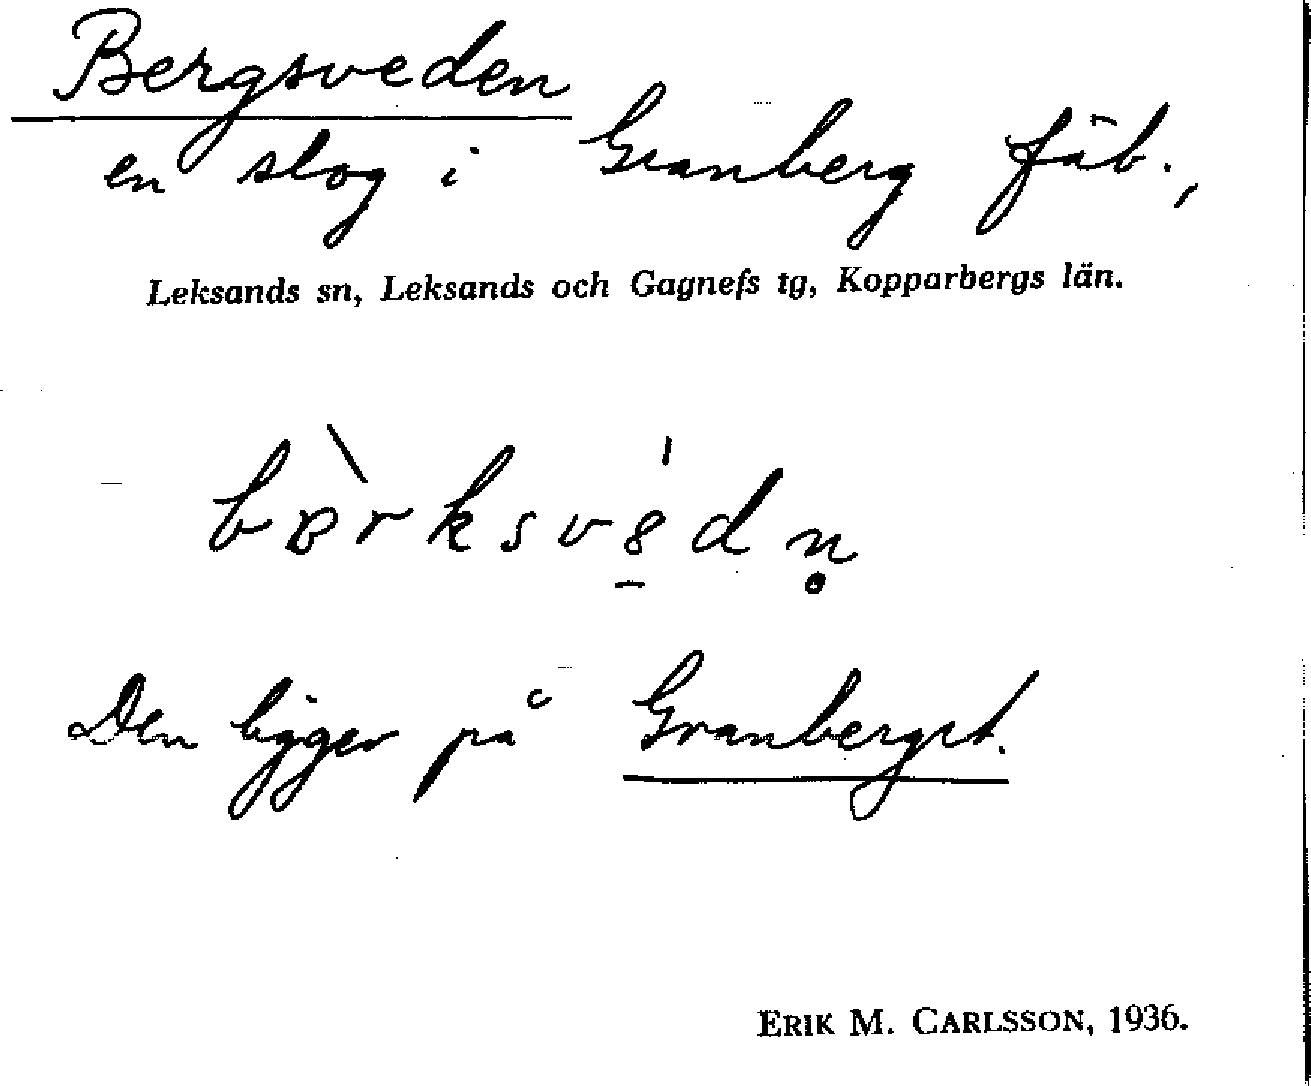 Bergsveden
en slog i Granberg fäb.,
Leksands sn, Leksands och Gagnefs tg, Kopparbergs län.
Den ligger på Granberget.
ERIK M. CARLSSON, 1936.